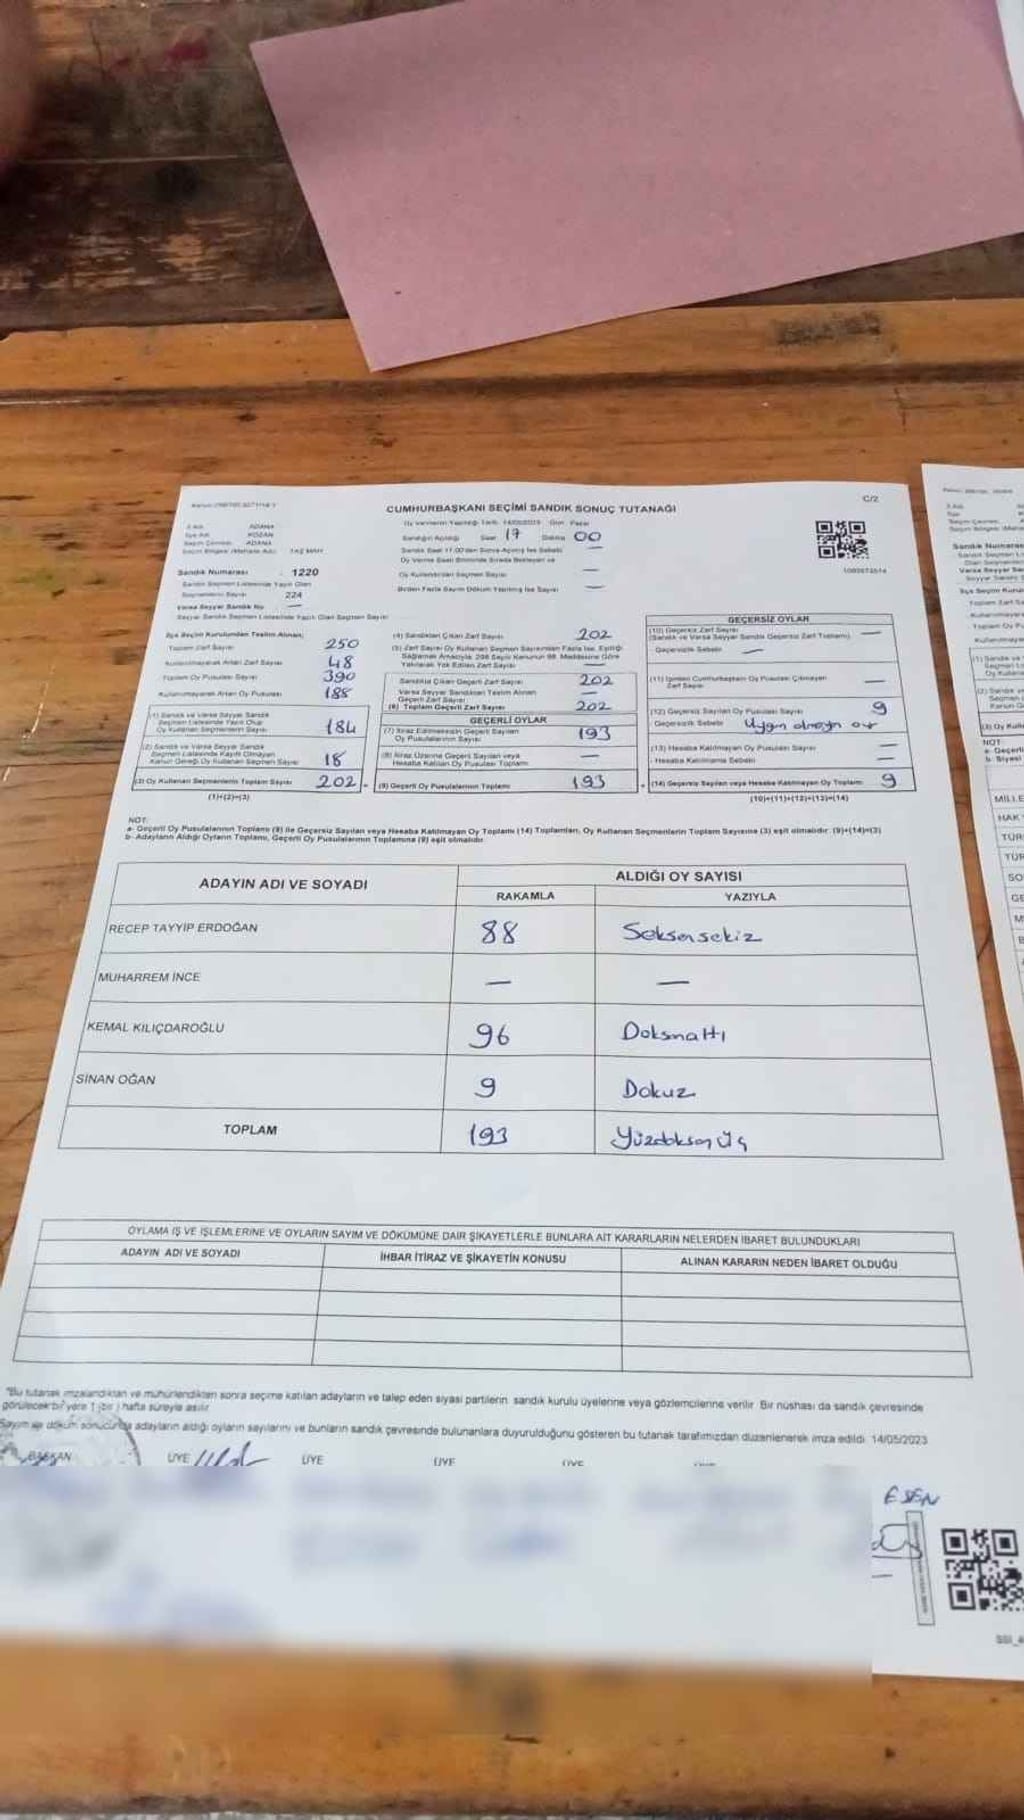 CUMHURBAŞKANI SEÇİMİ SANDIK SONUÇ TUTANAĞI
C/2
Oy Vermenin Yapıldığı Tarih: 14/05/2023 Gün: Pazar
İl Adı ADANA
Sandığın Açıldığı Saat 17 Dakika 00
İlçe Adı KOZAN
Seçim Çevresi ADANA
Sandık Numarası : 1220
Sandık Seçmen Listesinde Yazılı Olan
Seçmenlerin Sayısı 224
Varsa Seyyar Sandık No —
Seyyar Sandık Seçmen Listesinde Yazılı Olan Seçmen Sayısı
Oy Kullandırılan Seçmen Sayısı —
Birden Fazla Sayım Döküm Yapılmış İse Sayısı
İlçe Seçim Kurulundan Teslim Alınan;
Toplam Zarf Sayısı 250
Kullanılmayarak Artan Zarf Sayısı 48
Toplam Oy Pusulası Sayısı 390
Kullanılmayarak Artan Oy Pusulası 188
(1) Sandık ve Varsa Seyyar Sandık
Seçmen Listesinde Yazılı Olup
Oy Kullanan Seçmenlerin Sayısı 184
(2) Sandık ve Varsa Seyyar Sandık
Seçmen Listesinde Kayıtlı Olmayan
Kanun Gereği Oy Kullanan Seçmen Sayısı 18
(3) Oy Kullanan Seçmenlerin Toplam Sayısı 202
(1)+(2)=(3)
(4) Sandıktan Çıkan Zarf Sayısı 202
(5) Zarf Sayısı Oy Kullanan Seçmen Sayısından Fazla İse, Eşitliği
Sağlamak Amacıyla, 298 Sayılı Kanunun 98. Maddesine Göre
Yakılarak Yok Edilen Zarf Sayısı —
Sandıkta Çıkan Geçerli Zarf Sayısı 202
Varsa Seyyar Sandıktan Teslim Alınan
Geçerli Zarf Sayısı —
(6) Toplam Geçerli Zarf Sayısı 202
GEÇERLİ OYLAR
(7) İtiraz Edilmeksizin Geçerli Sayılan
Oy Pusulalarının Sayısı 193
(8) İtiraz Üzerine Geçerli Sayılan veya
Hesaba Katılan Oy Pusulası Toplamı —
(9) Geçerli Oy Pusulalarının Toplamı 193
GEÇERSİZ OYLAR
(10) Geçersiz Zarf Sayısı
(Sandık ve Varsa Seyyar Sandık Geçersiz Zarf Toplamı) —
Geçersizlik Sebebi —
(11) İçinden Cumhurbaşkanı Oy Pusulası Çıkmayan
Zarf Sayısı —
(12) Geçersiz Sayılan Oy Pusulası Sayısı 9
Geçersizlik Sebebi Uygun olmayan oy
(13) Hesaba Katılmayan Oy Pusulası Sayısı —
Hesaba Katılmama Sebebi —
(14) Geçersiz Sayılan veya Hesaba Katılmayan Oy Toplamı 9
(10)+(11)+(12)+(13)=(14)
NOT:
a- Geçerli Oy Pusulalarının Toplamı (9) ile Geçersiz Sayılan veya Hesaba Katılmayan Oy Toplamı (14) Toplamları, Oy Kullanan Seçmenlerin Toplam Sayısına (3) eşit olmalıdır. (9)+(14)=(3)
b- Adayların Aldığı Oyların Toplamı, Geçerli Oy Pusulalarının Toplamına (9) eşit olmalıdır.
ADAYIN ADI VE SOYADI
ALDIĞI OY SAYISI
RAKAMLA YAZIYLA
RECEP TAYYİP ERDOĞAN 88 Seksensekiz
MUHARREM İNCE — —
KEMAL KILIÇDAROĞLU 96 Doksnaltı
SİNAN OĞAN 9 Dokuz
TOPLAM 193 Yüzdoksan üç
OYLAMA İŞ VE İŞLEMLERİNE VE OYLARIN SAYIM VE DÖKÜMÜNE DAİR ŞİKAYETLERLE BUNLARA AİT KARARLARIN NELERDEN İBARET BULUNDUKLARI
ADAYIN ADI VE SOYADI İHBAR İTİRAZ VE ŞİKAYETİN KONUSU ALINAN KARARIN NEDEN İBARET OLDUĞU
"Bu tutanak imzalandıktan ve mühürlendikten sonra seçime katılan adayların ve talep eden siyasi partilerin sandık kurulu üyelerine veya gözlemcilerine verilir. Bir nüshası da sandık çevresinde
görülecek bir yere 1 (bir) hafta süreyle asılır.
Sayım ve döküm sonucunda adayların aldığı oyların sayılarını ve bunların sandık çevresinde bulunanlara duyurulduğunu gösteren bu tutanak tarafımızdan düzenlenerek imza edildi. 14/05/2023
BAŞKAN ÜYE ÜYE ÜYE ÜYE
ESEN